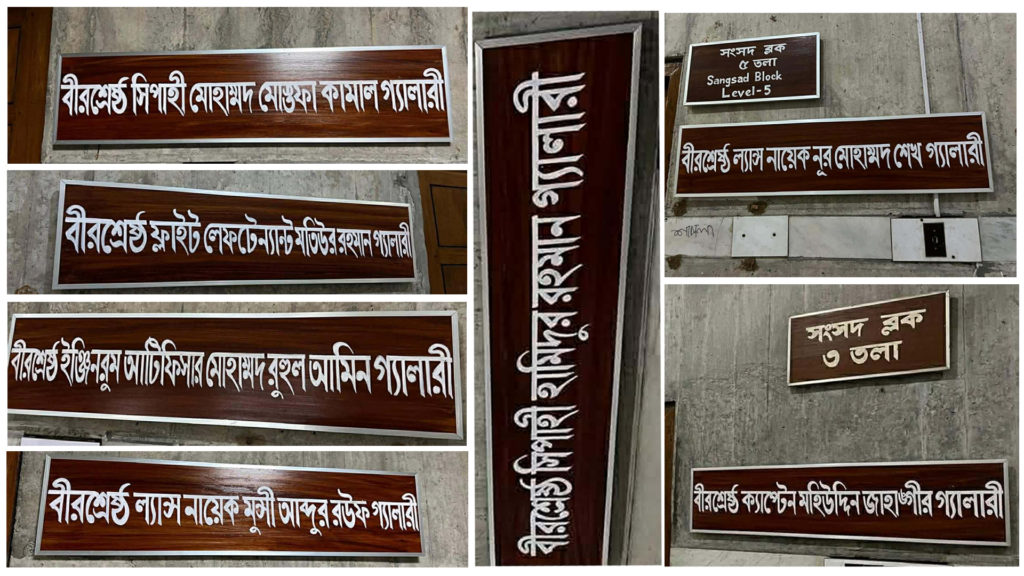 বীরশ্রেষ্ঠ সিপাহী মোহাম্মদ মোস্তফা কামাল গ্যালারী
বীরশ্রেষ্ঠ ফ্লাইট লেফটেন্যান্ট মতিউর রহমান গ্যালারী
বীরশ্রেষ্ঠ ইঞ্জিনরুম আর্টিফিসার মোহাম্মদ রুহুল আমিন গ্যালারী
বীরশ্রেষ্ঠ ল্যান্স নায়েক মুন্সী আব্দুর রউফ গ্যালারী
বীরশ্রেষ্ঠ সিপাহী হামিদুর রহমান গ্যালারী
সংসদ ব্লক
৫ তলা
Sangsad Block
Level-5
বীরশ্রেষ্ঠ ল্যান্স নায়েক নূর মোহাম্মদ শেখ গ্যালারী
সংসদ ব্লক
৩ তলা
বীরশ্রেষ্ঠ ক্যাপ্টেন মহিউদ্দিন জাহাঙ্গীর গ্যালারী